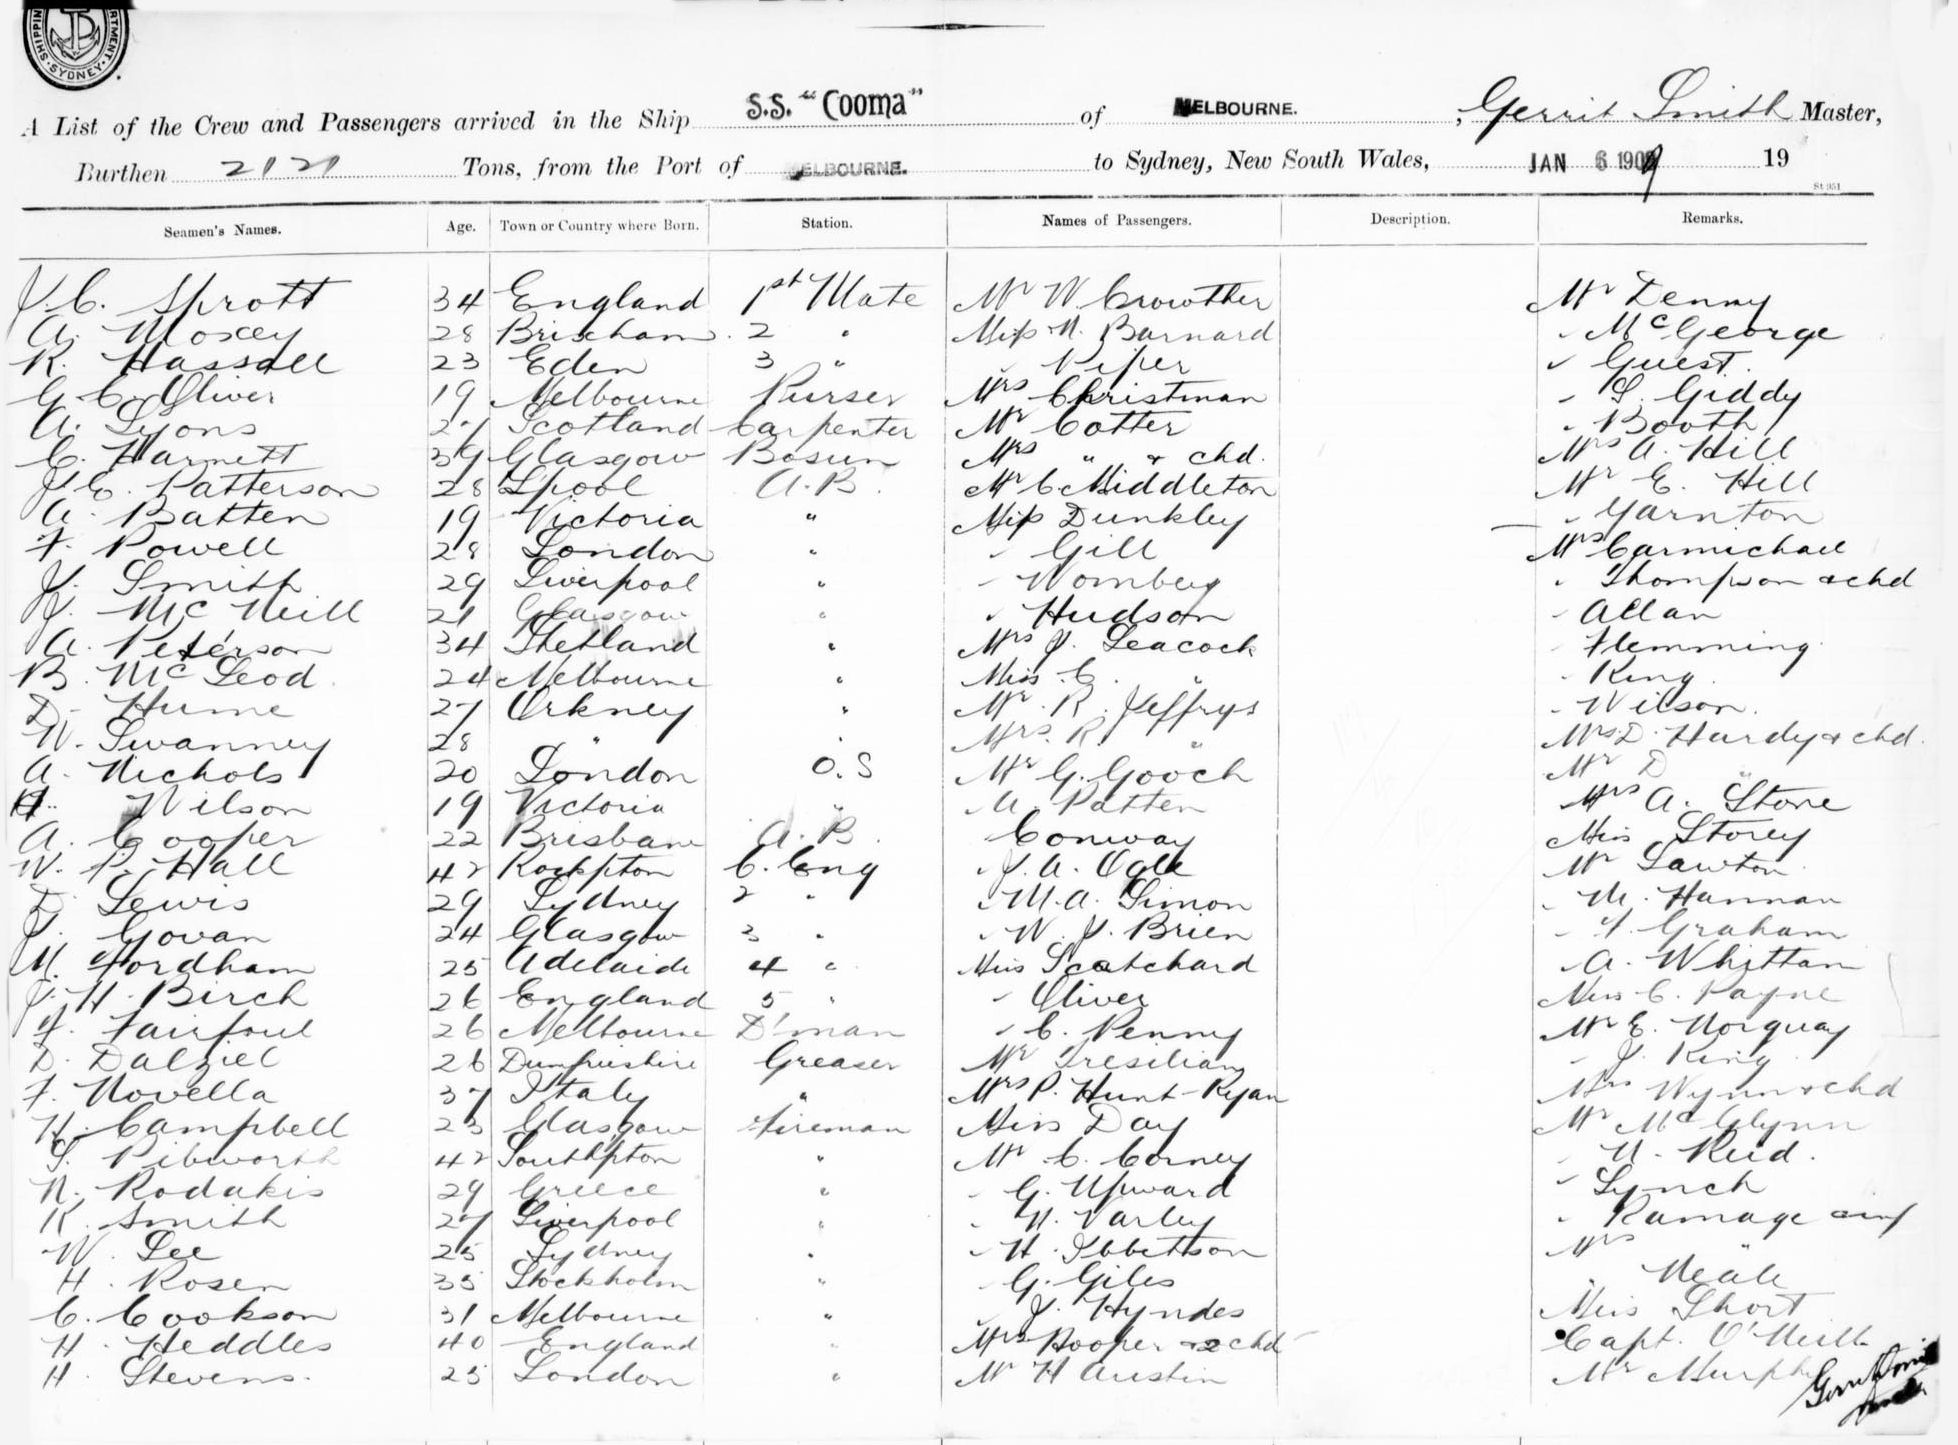 SHIPPING DEPARTMENT SYDNEY
A List of the Crew and Passengers arrived in the Ship S.S. "Cooma" of MELBOURNE. , Gerrit Smith Master,
Burthen 2121 Tons, from the Port of MELBOURNE. to Sydney, New South Wales, JAN 6 1909 19
St 951
Seamen's Names. Age. Town or Country where Born. Station. Names of Passengers. Description. Remarks.
J. C. Sprott 34 England 1st Mate Mr W. Crowther Mr Denny
A. Moxey 28 Brixham. 2 " Miss M. Barnard " McGeorge
R. Hassall 23 Eden 3 " " Piper " Guest.
G. C. Oliver 19 Melbourne Purser Mrs Christman " S. Giddy
A. Lyons 27 Scotland Carpenter Mr Cotter " Booth
C. Harnett 39 Glasgow Bosun Mrs " & chd. Mrs A. Hill
J. E. Patterson 28 L'pool A.B. Mr C Middleton Mr E. Hill
A. Batten 19 Victoria " Miss Dunkley " Yarnton
F. Powell 28 London " " Gill Mrs Carmichael
J. Smith 29 Liverpool " " Wornberg " Thompson & chd
J. McNeill 21 Glasgow " " Hudson " Allan
A. Peterson 34 Shetland " Mrs J. Leacock " Flemming
B. McLeod 24 Melbourne " Miss C. " " King
D. Hume 27 Orkney " Mr. R. Jeffrys " Wilson.
W. Swanney 28 " " Mrs. R. " Mrs D. Hardy & chd.
A. Nichols 20 London O.S Mr G. Gooch Mr D "
Wilson 19 Victoria " A. Patten Mrs A. Stone
A. Cooper 22 Brisbane A.B. Conway Miss Storey
W. P. Hall 42 Rockpton C. Eng " J. A. Ogle Mr Lawton
D. Lewis 29 Sydney 2 " " M. A. Simon " M. Hannan
J. Govan 24 Glasgow 3 " " W. J. Brien " F. Graham
M. Fordham 25 Adelaide 4 " Miss Scatchard " A. Whittam
J. H. Birch 26 England 5 " " Oliver Miss C. Payne
F. Fairfoul 26 Melbourne D'man " C. Penny Mr E. Norquay
D. Dalziel 26 Dumfrieshire Greaser Mr Tresilian " J. King
F. Novella 37 Italy " Mrs P. Hunt-Ryan Mrs Wynn & chd
H. Campbell 23 Glasgow Fireman Miss Day Mr McGlynn
S. Pibworth 42 Southpton " Mr C. Corney " N. Reid.
N. Rodakis 29 Greece " " G. Upward " Lynch
R. Smith 27 Liverpool " " H. Varley " Ramage
W. Lee 25 Sydney " " H. Ibbettson Mrs "
H. Rosen 35 Stockholm " " G. Giles " Neale
C. Cookson 31 Melbourne " " J. Hyndes Miss Short
H. Heddles 40 England " Mrs Hooper & 2 chd Capt. O'Neill
H. Stevens. 25 London " Mr H Austin Mr Murphy